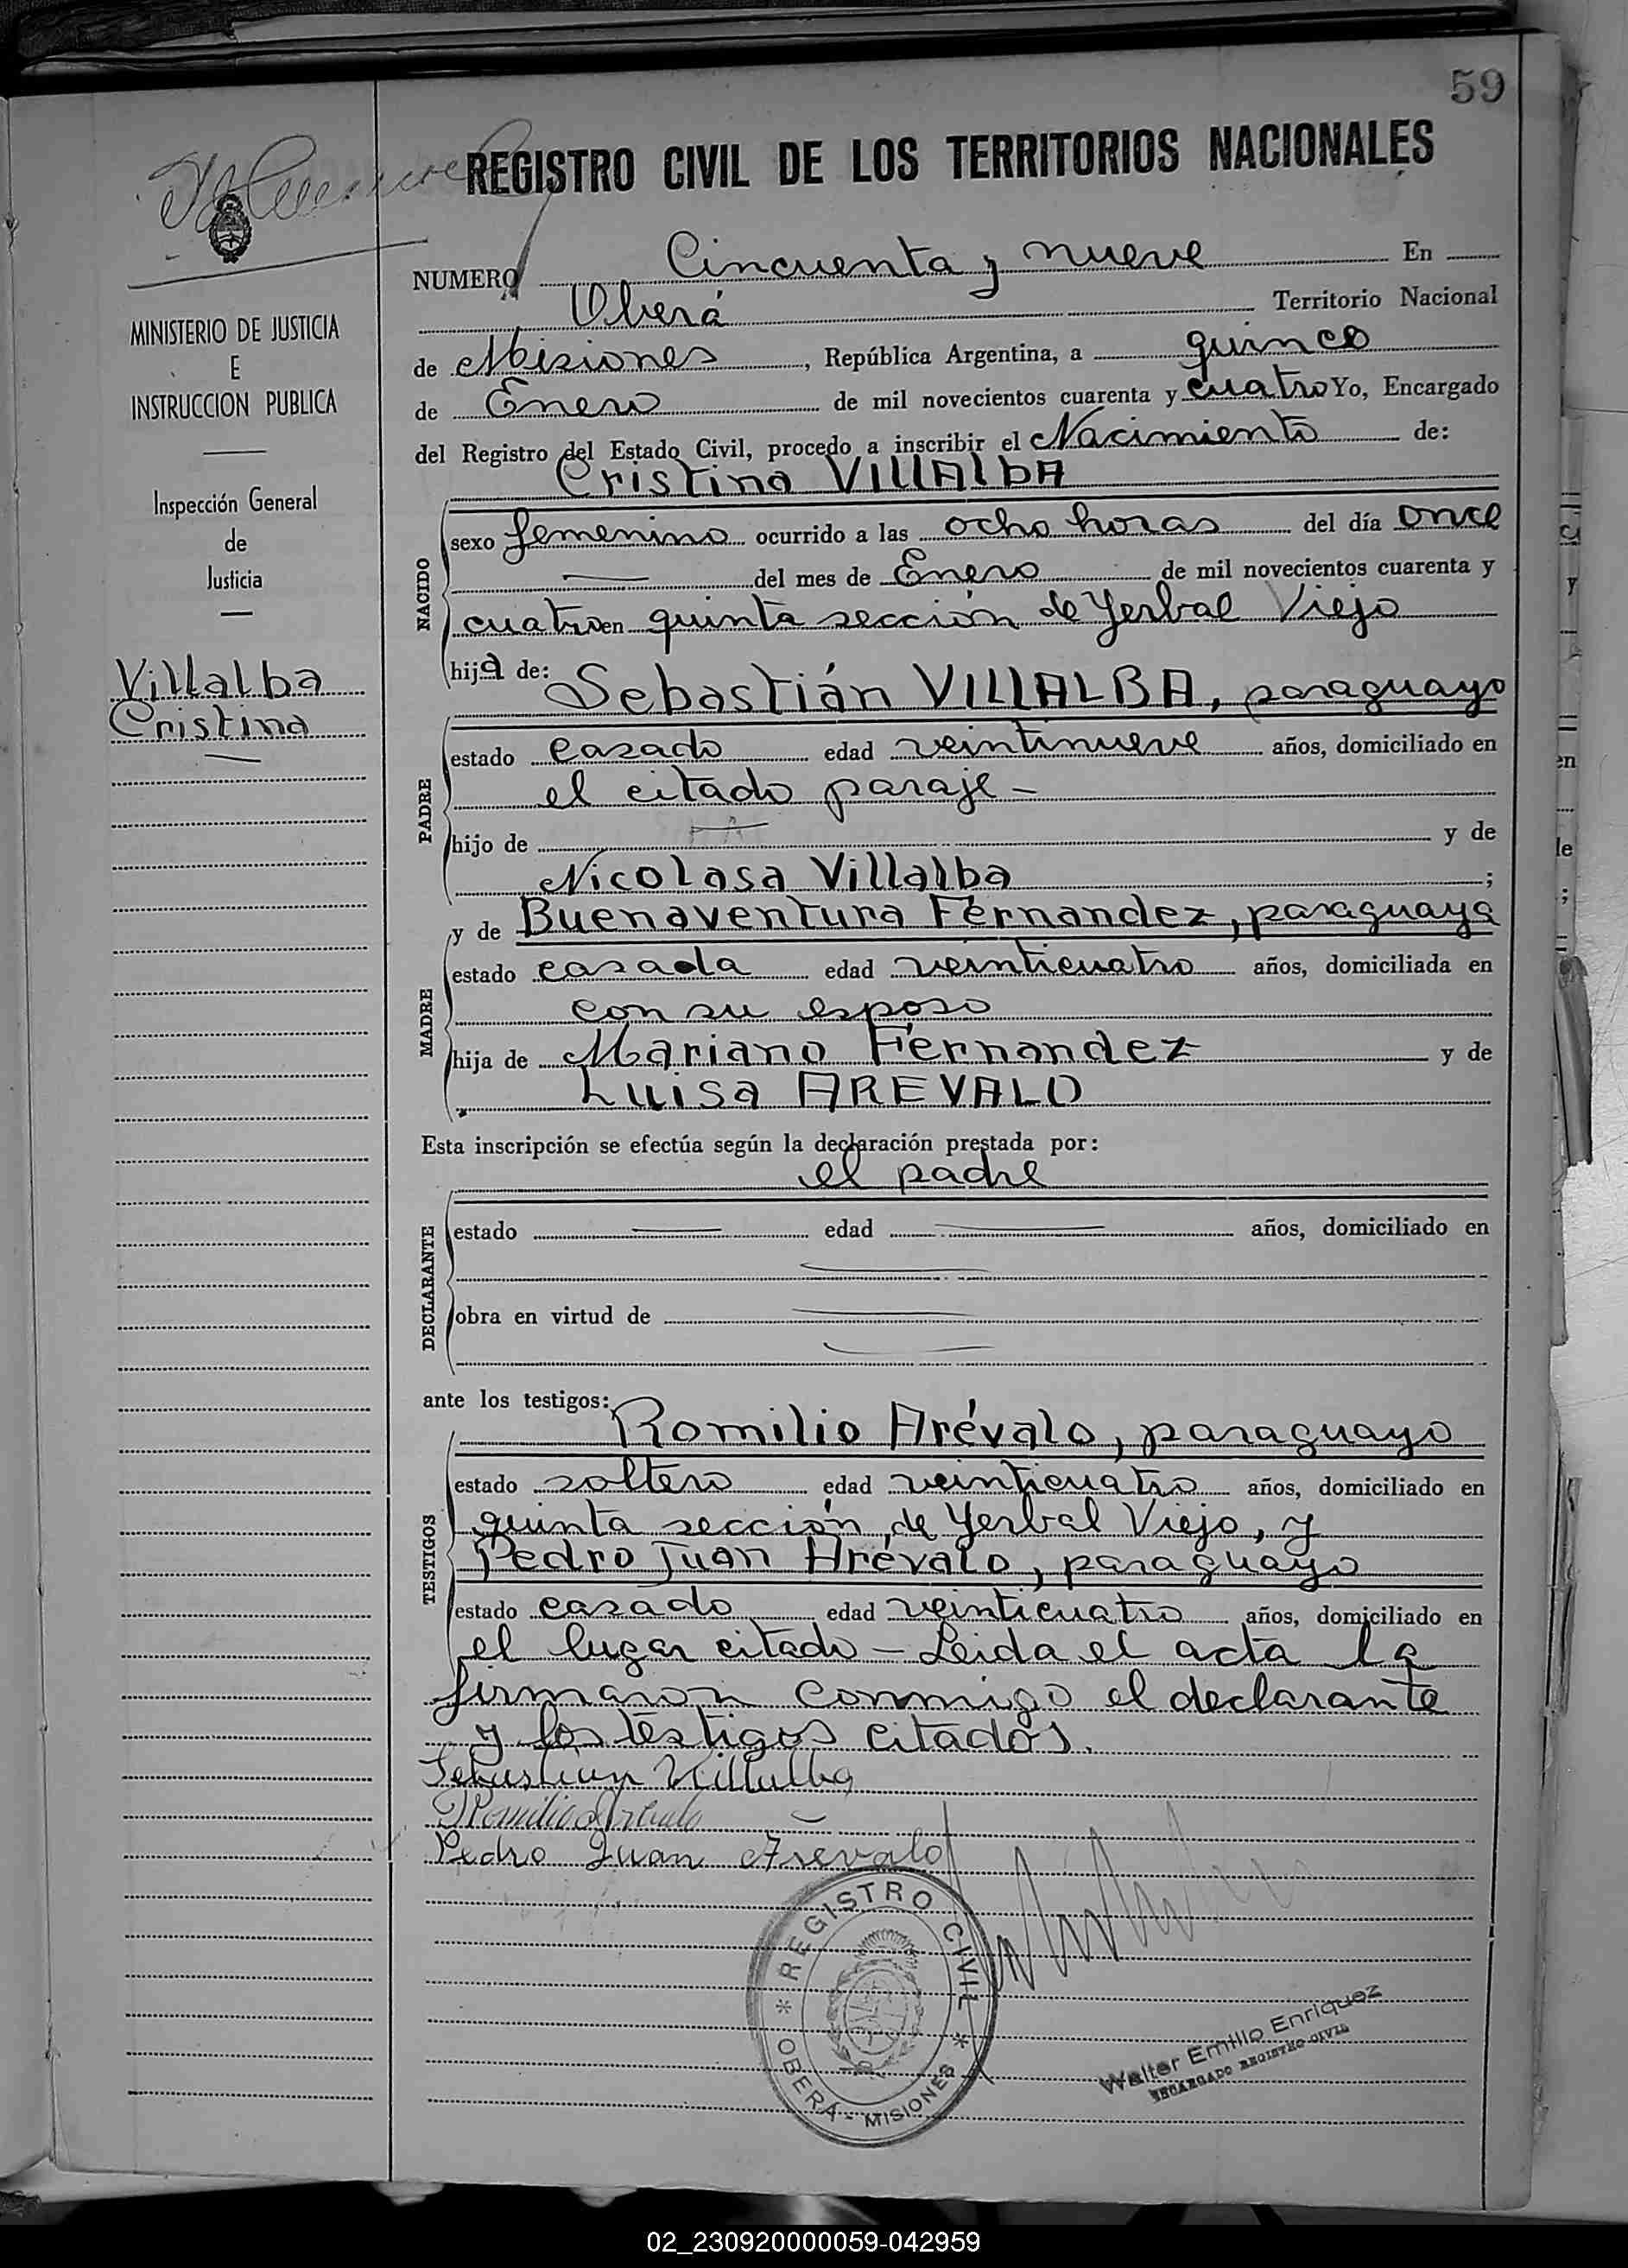 59
REGISTRO CIVIL DE LOS TERRITORIOS NACIONALES
NUMERO Cincuenta y nueve En
Oberá Territorio Nacional
de Misiones, República Argentina, a quince
de Enero de mil novecientos cuarenta y cuatro Yo, Encargado
del Registro del Estado Civil, procedo a inscribir el Nacimiento de:
Cristina VIllAlbA
MINISTERIO DE JUSTICIA
E
INSTRUCCION PUBLICA
Inspección General
de
Justicia
Villalba
Cristina
NACIDO
sexo femenino ocurrido a las ocho horas del día once
del mes de Enero de mil novecientos cuarenta y
cuatro en quinta sección de Yerbal Viejo
hija de: Sebastián VILLALBA, paraguayo
PADRE
estado casado edad veintinueve años, domiciliado en
el citado paraje -
hijo de y de
Nicolasa Villalba ;
y de Buenaventura Fernandez, paraguaya
MADRE
estado casada edad veinticuatro años, domiciliada en
con su esposo
hija de Mariano Fernandez y de
Luisa AREVALO
Esta inscripción se efectúa según la declaración prestada por:
el padre
DECLARANTE
estado edad años, domiciliado en
obra en virtud de
ante los testigos:
Romilio Arévalo, paraguayo
TESTIGOS
estado soltero edad veinticuatro años, domiciliado en
quinta sección de Yerbal Viejo, y
Pedro Juan Arévalo, paraguayo
estado casado edad veinticuatro años, domiciliado en
el lugar citado - Leida el acta la
firmaron conmigo el declarante
y los testigos citados.
Sebastian Villalba
Romilio Arevalo
Pedro Juan Arevalo
REGISTRO CIVIL
OBERÁ - MISIONES
Walter Emilio Enriquez
ENCARGADO REGISTRO CIVIL
02_230920000059-042959